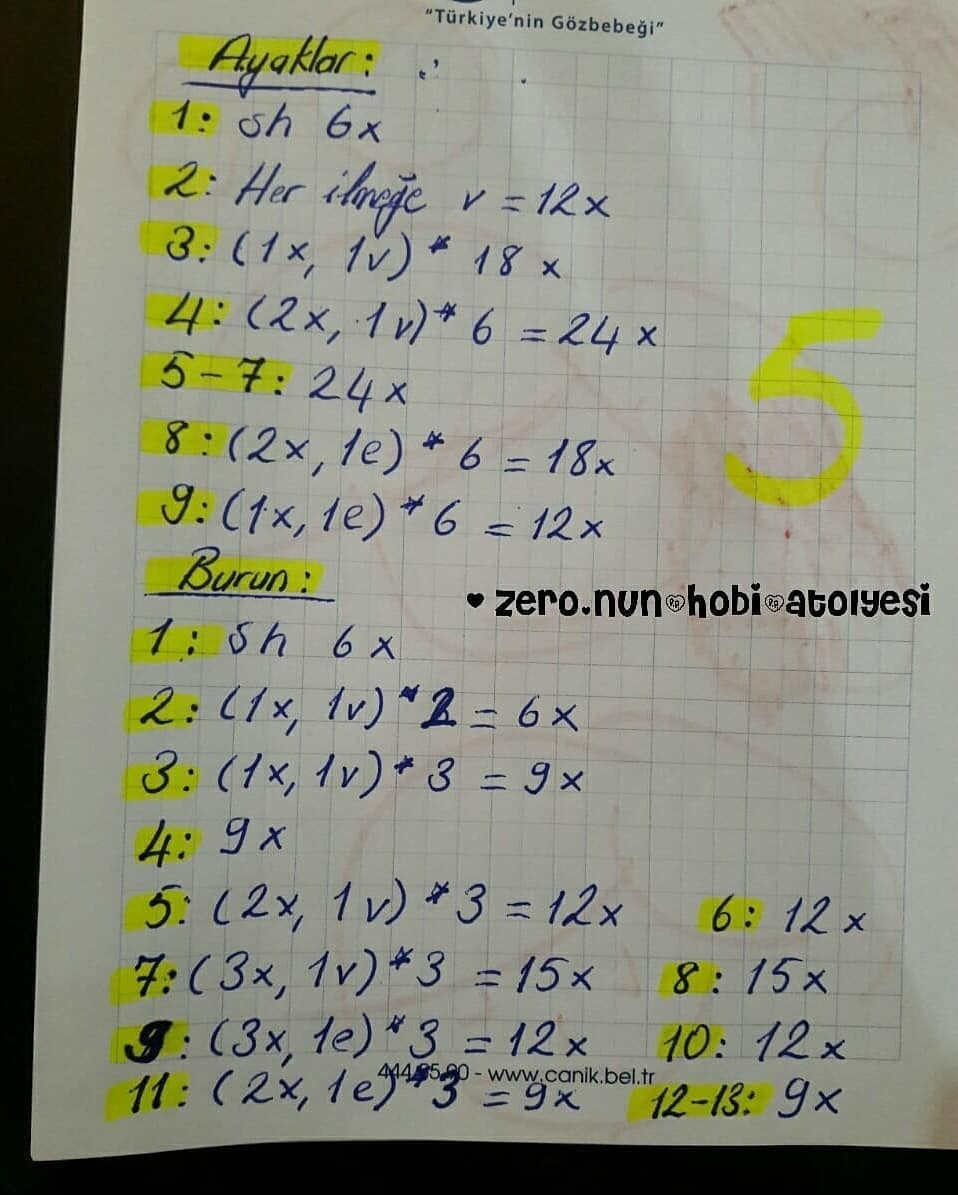 "Türkiye'nin Gözbebeği"
Ayaklar:
1: sh 6x
2: Her ilmeğe v = 12x
3: (1x, 1v) * 18 x
4: (2x, 1v)* 6 = 24x
5-7: 24x
8: (2x, 1e) * 6 = 18x
9: (1x, 1e) * 6 = 12x
5
Burun:
♥ zero.nun hobi atolyesi
1: sh 6x
2: (1x, 1v) * 2 = 6x
3: (1x, 1v) * 3 = 9x
4: 9x
5: (2x, 1v) * 3 = 12x 6: 12x
7: (3x, 1v) * 3 = 15x 8: 15x
9: (3x, 1e) * 3 = 12x 10: 12x
- www.canik.bel.tr
11: (2x, 1e) * 3 = 9x 12-13: 9x